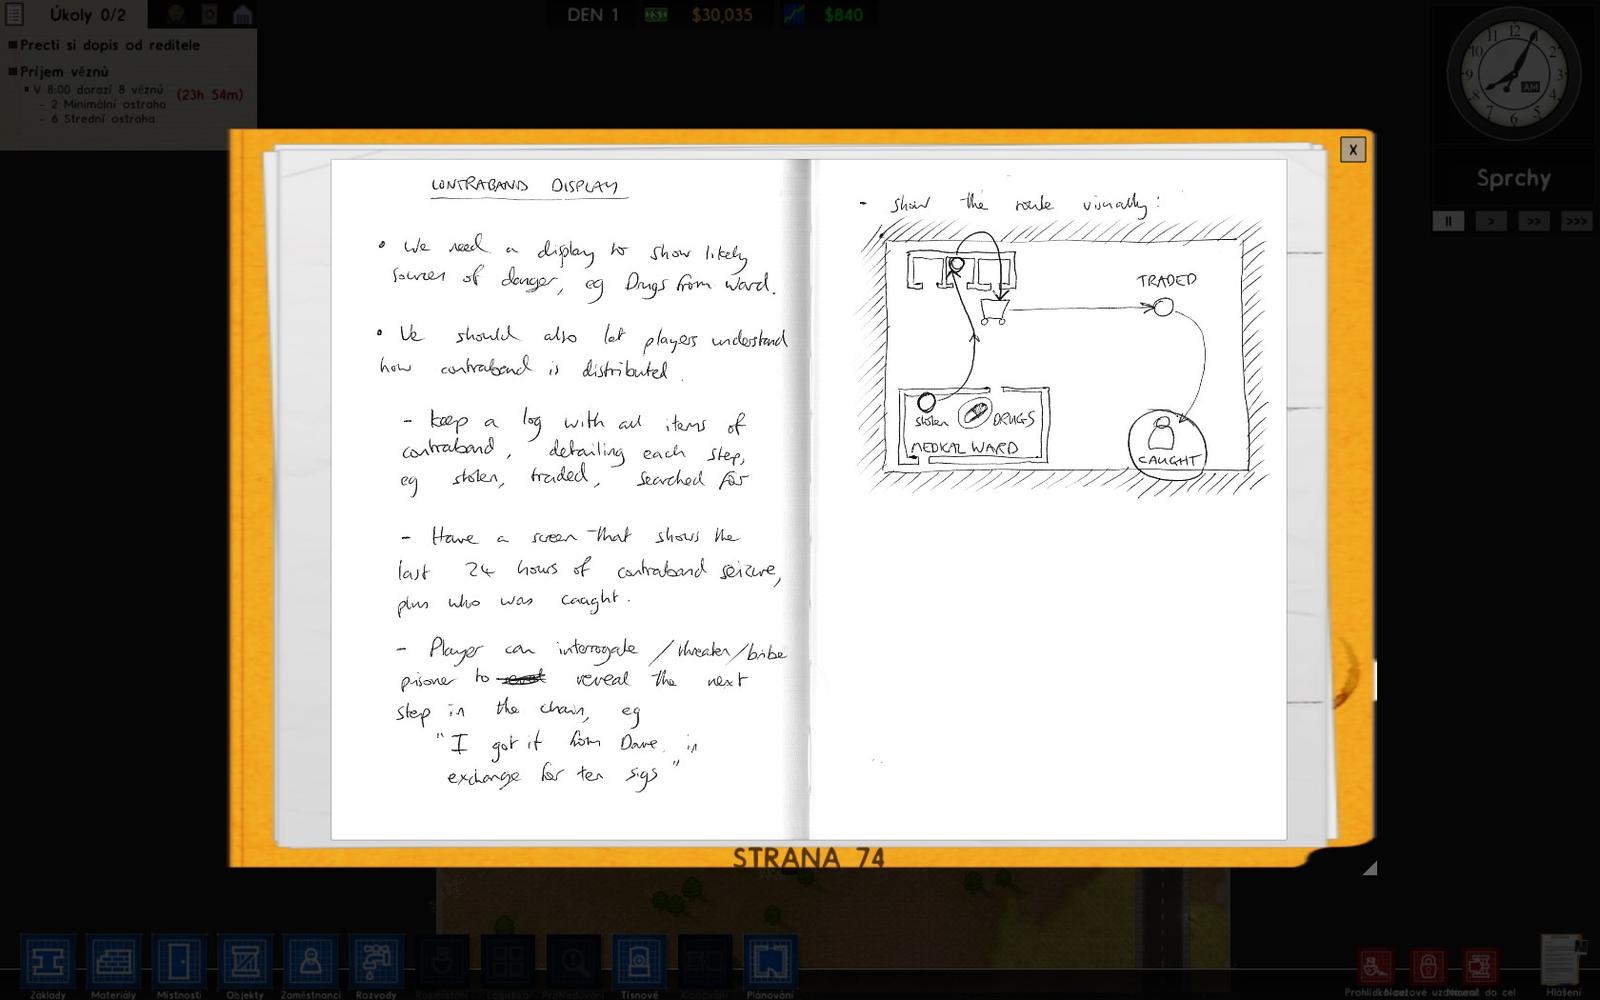 Úkoly 0/2
DEN 1
$30,035
$840
Precti si dopis od reditele
Príjem věznů
V 8:00 dorazí 8 věznů
(23h 54m)
- 2 Minimální ostraha
- 6 Strední ostraha
AM
Sprchy
X
CONTRABAND DISPLAY
• We need a display to show likely
sources of danger, eg Drugs from ward.
• We should also let players understand
how contraband is distributed.
- Keep a log with all items of
contraband, detailing each step,
eg stolen, traded, searched for
- Have a screen that shows the
last 24 hours of contraband seizure,
plus who was caught.
- Player can interrogate /threaten/bribe
prisoner to reveal the next
step in the chain, eg
"I got it from Dave, in
exchange for ten sigs"
- show the route visually:
TRADED
stolen
DRUGS
MEDICAL WARD
CAUGHT
STRANA 74
Základy
Materiály
Místnosti
Objekty
Zaměstnanci
Rozvody
Tísnové
Plánování
Hlášení